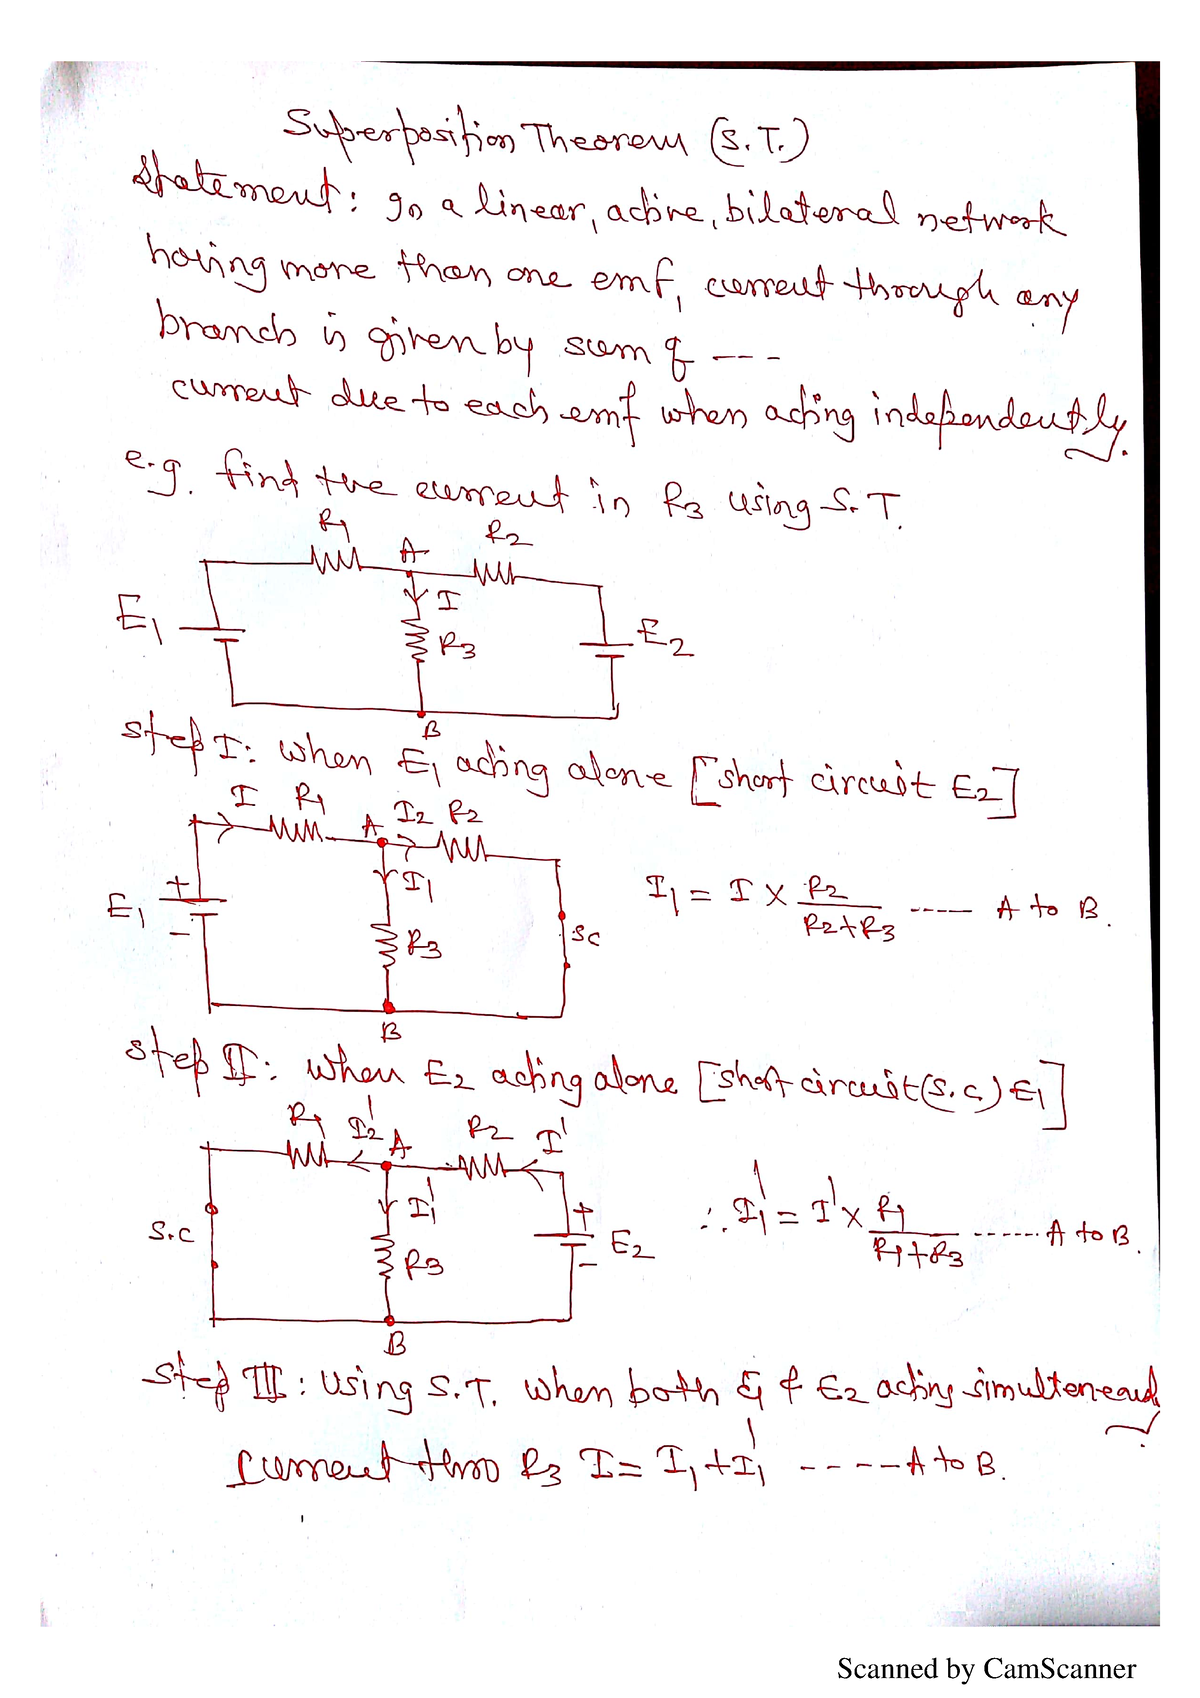 Superposition Theorem (S.T.)
Statement: In a linear, active, bilateral network
having more than one emf, current through any
branch is given by sum of ---
current due to each emf when acting independently.
e.g. find the current in R3 using S.T.
R1 A R2
I
E1 R3 E2
B
Step I: when E1 acting alone [short circuit E2]
I R1 A I2 R2
+ I1
E1 - R3 SC
I1 = I X R2 / R2+R3 ----- A to B.
B
Step II: when E2 acting alone [short circuit (S.C) E1]
R1 I2' A R2 I'
I1' +
S.C R3 E2 -
∴ I1' = I' x R1 / R1+R3 ------ A to B.
B
Step III: Using S.T. when both E1 & E2 acting simulteneously
Current thro R3 I = I1 + I1' ---- A to B.
Scanned by CamScanner